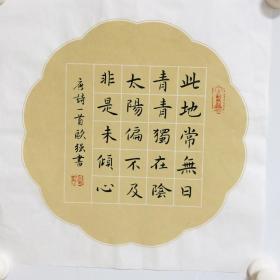 此地常無日
青青獨在陰
太陽偏不及
非是未傾心
唐詩一首歐強書